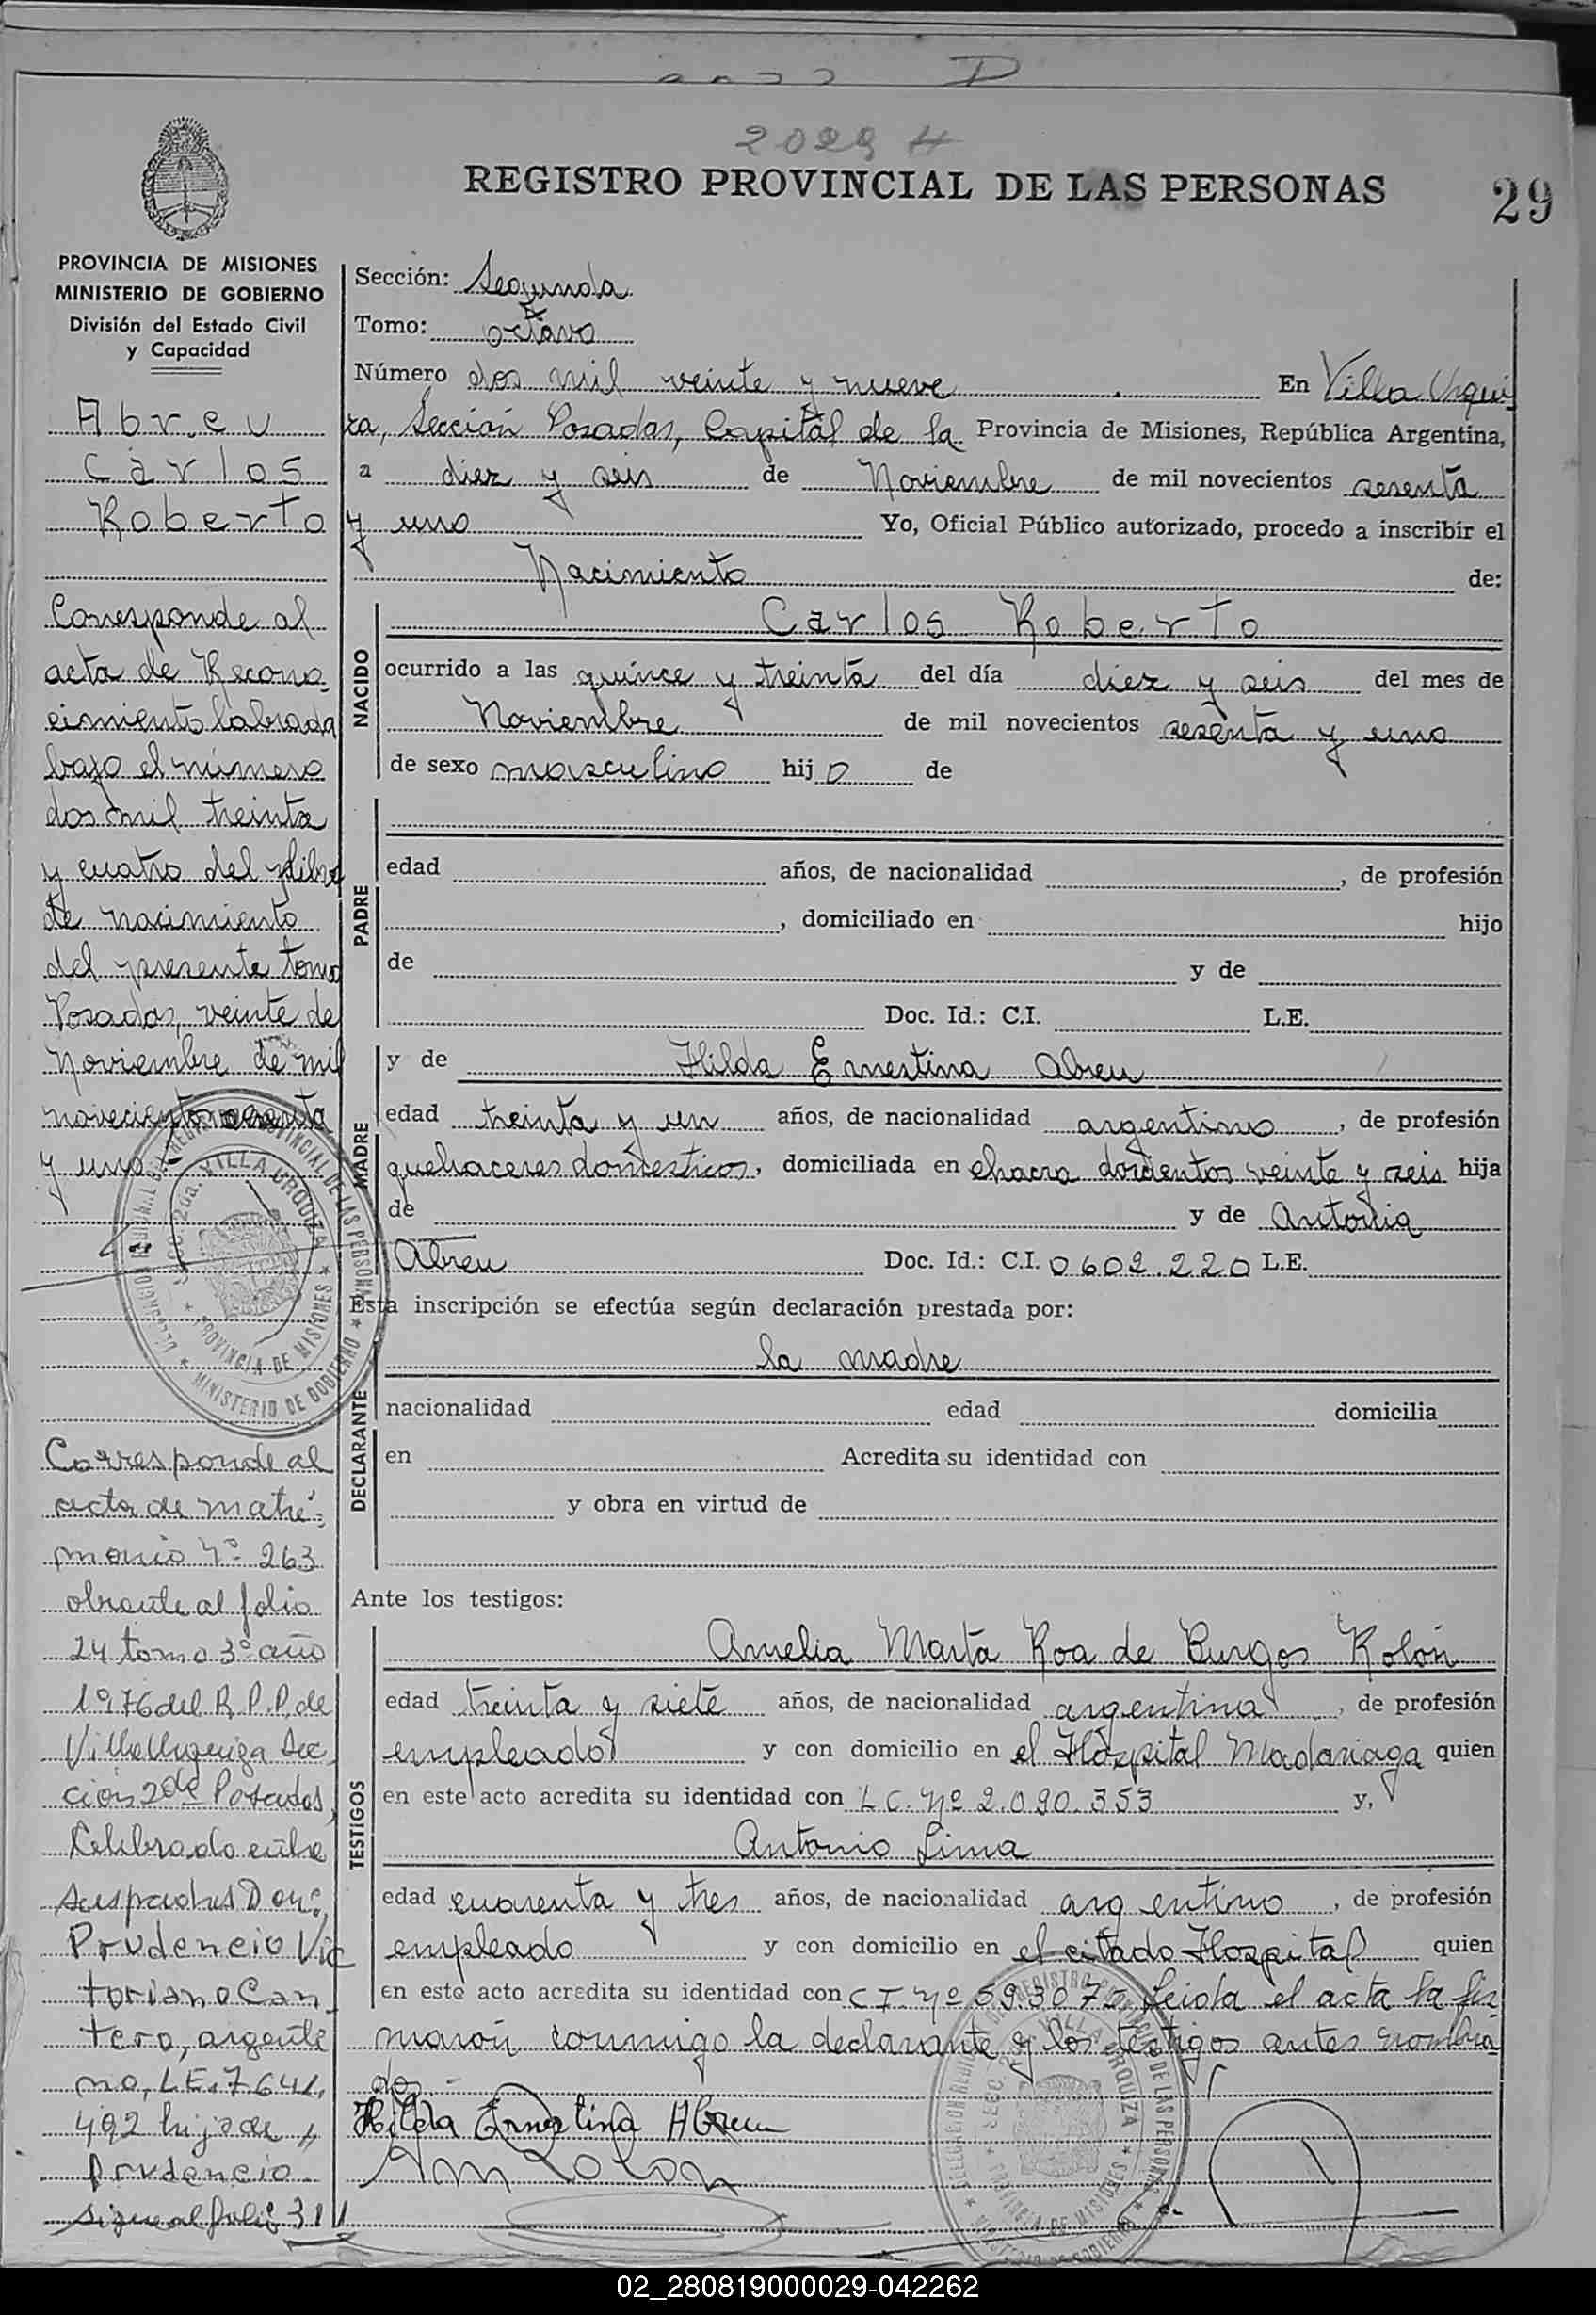 2029 H
REGISTRO PROVINCIAL DE LAS PERSONAS
29
PROVINCIA DE MISIONES
MINISTERIO DE GOBIERNO
División del Estado Civil
y Capacidad
Abreu
Carlos
Roberto
Corresponde al
acta de Recono-
cimiento labrada
bajo el número
dos mil treinta
y cuatro del libro
de nacimiento
del presente tomo
Posadas, veinte de
Noviembre de mil
novecientos sesenta
y uno
Corresponde al
acta de matri-
monio Nº 263
obrante al folio
24 tomo 3º año
1976 del R.P.P. de
Villa Urquiza Sec
ción 2da Posadas,
Celebrado entre
sus padres Don:
Prudencio Vic
toriano Can-
tero, argenti
no, L.E. 7.641.
492 hijo de
Prudencio
sigue al folio 311
Sección: Segunda
Tomo: octavo
Número dos mil veinte y nueve . En Villa Urqui
za, Sección Posadas, Capital de la Provincia de Misiones, República Argentina,
a diez y seis de Noviembre de mil novecientos sesenta
y uno Yo, Oficial Público autorizado, procedo a inscribir el
Nacimiento de:
NACIDO
Carlos Roberto
ocurrido a las quince y treinta del día diez y seis del mes de
Noviembre de mil novecientos sesenta y uno
de sexo masculino hijo de
PADRE
edad años, de nacionalidad , de profesión
, domiciliado en hijo
de y de
Doc. Id.: C.I. L.E.
MADRE
y de Hilda Ernestina Abreu
edad treinta y un años, de nacionalidad argentina , de profesión
quehaceres domesticos, domiciliada en chacra doscientos veinte y seis hija
de y de Antonia
Abreu Doc. Id.: C.I. 0602.220 L.E.
Esta inscripción se efectúa según declaración prestada por:
DECLARANTE
la madre
nacionalidad edad domicilia
en Acredita su identidad con
y obra en virtud de
Ante los testigos:
TESTIGOS
Amelia Marta Roa de Burgos Rolón
edad treinta y siete años, de nacionalidad argentina , de profesión
empleada y con domicilio en el Hospital Madariaga quien
en este acto acredita su identidad con L.C. Nº 2.090.353 y,
Antonio Lima
edad cuarenta y tres años, de nacionalidad argentino , de profesión
empleado y con domicilio en el citado Hospital quien
en este acto acredita su identidad con C.I. Nº 59.307 Leida el acta la fir
maron conmigo la declarante y los testigos antes nombra
dos.-
Hilda Ernestina Abreu
SECC. 2da. VILLA URQUIZA
PROVINCIA DE MISIONES
MINISTERIO DE GOBIERNO
02_280819000029-042262